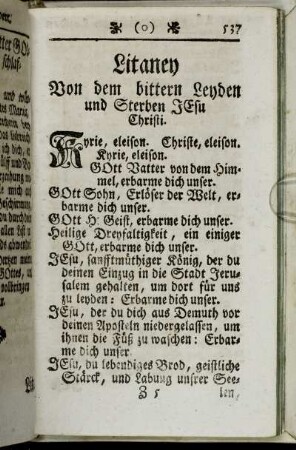 (o) 537
Litaney
Von dem bittern Leyden
und Sterben JEsu
Christi.
Kyrie, eleison. Christe, eleison.
Kyrie, eleison.
GOtt Vatter von dem Him-
mel, erbarme dich unser.
GOtt Sohn, Erlöser der Welt, er-
barme dich unser.
GOtt H. Geist, erbarme dich unser.
Heilige Dreyfaltigkeit, ein einiger
GOtt, erbarme dich unser.
JEsu, sanfftmüthiger König, der du
deinen Einzug in die Stadt Jeru-
salem gehalten, um dort für uns
zu leyden: Erbarme dich unser.
JEsu, der du dich aus Demuth vor
deinen Aposteln niedergelassen, um
ihnen die Füß zu waschen: Erbar-
me dich unser
JEsu, du lebendiges Brod, geistliche
Stärck, und Labung unsrer See-
Z 5 len,